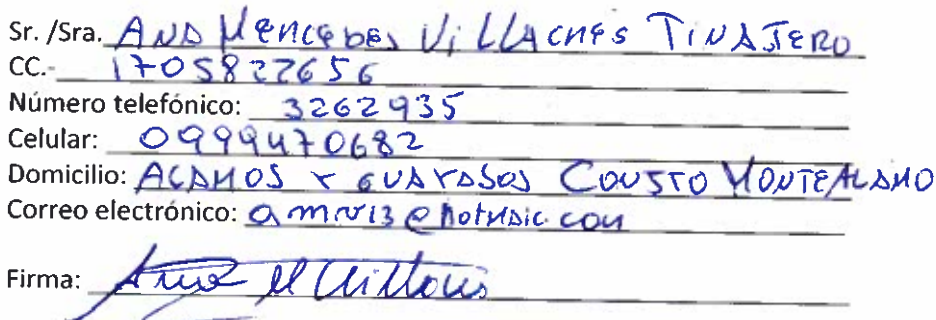 Sr. /Sra. ANA MERCEDES VILLACRES TINAJERO
CC.- 1705822656
Número telefónico: 3262935
Celular: 0999470682
Domicilio: ALAMOS Y GUAYABOS CONJTO MONTEALAMO
Correo electrónico: amv13@hotmail.com
Firma: Ana M Villacrés